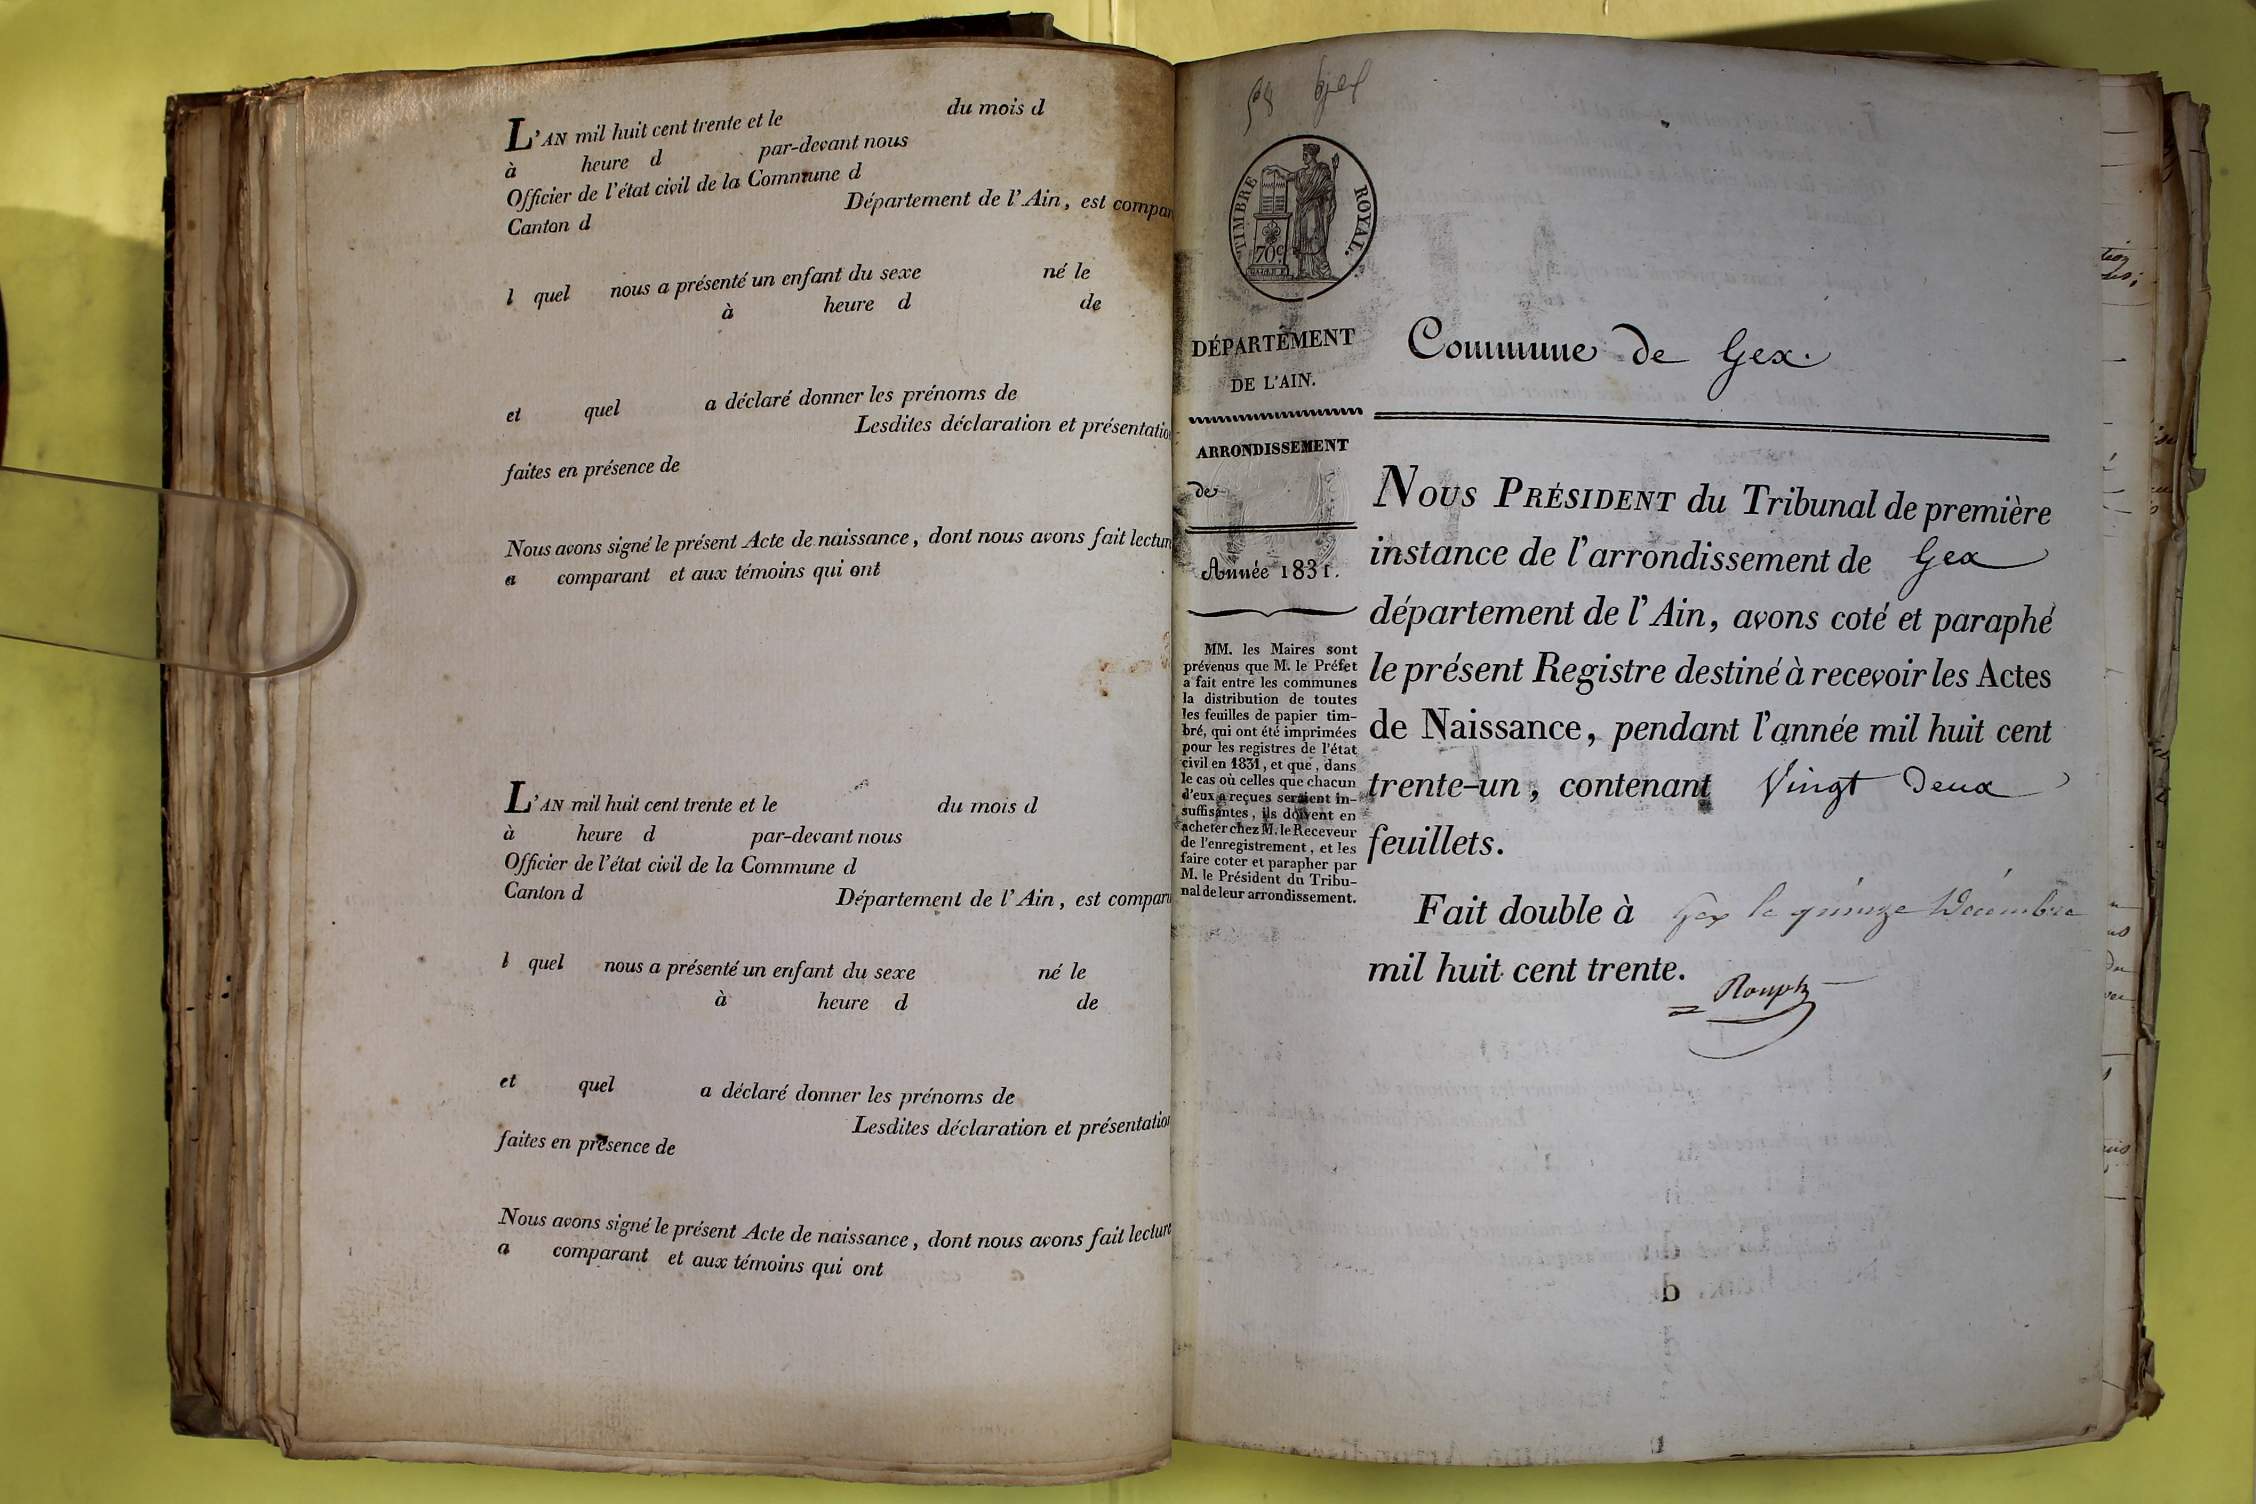 L'AN mil huit cent trente et le du mois d
à heure d par-devant nous
Officier de l'état civil de la Commune d
Canton d Département de l'Ain, est compar
l quel nous a présenté un enfant du sexe né le
à heure d de
et quel a déclaré donner les prénoms de
Lesdites déclaration et présentatio
faites en présence de
Nous avons signé le présent Acte de naissance, dont nous avons fait lectur
a comparant et aux témoins qui ont
L'AN mil huit cent trente et le du mois d
à heure d par-devant nous
Officier de l'état civil de la Commune d
Canton d Département de l'Ain, est compar
l quel nous a présenté un enfant du sexe né le
à heure d de
et quel a déclaré donner les prénoms de
Lesdites déclaration et présentation
faites en présence de
Nous avons signé le présent Acte de naissance, dont nous avons fait lecture
a comparant et aux témoins qui ont
TIMBRE ROYAL.
70c
DÉPARTEMENT
DE L'AIN.
ARRONDISSEMENT
de
Année 1831.
MM. les Maires sont
prévenus que M. le Préfet
a fait entre les communes
la distribution de toutes
les feuilles de papier tim-
bré, qui ont été imprimées
pour les registres de l'état
civil en 1831, et que, dans
le cas où celles que chacun
d'eux a reçues seraient in-
suffisantes, ils doivent en
acheter chez M. le Receveur
de l'enregistrement, et les
faire coter et parapher par
M. le Président du Tribu-
nal de leur arrondissement.
Commune de Gex.
NOUS PRÉSIDENT du Tribunal de première
instance de l'arrondissement de Gex
département de l'Ain, avons coté et paraphé
le présent Registre destiné à recevoir les Actes
de Naissance, pendant l'année mil huit cent
trente-un, contenant Vingt Deux
feuillets.
Fait double à Gex le quinze Décembre
mil huit cent trente.